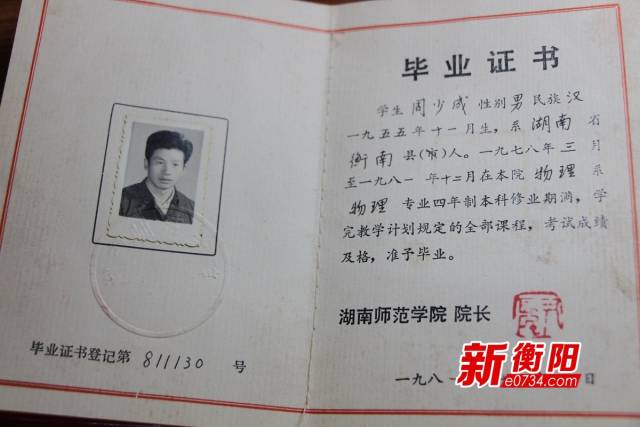 毕业证书登记第 811130 号
毕业证书
学生 周少成 性别 男 民族 汉
一九五五年十一月生，系 湖南 省
衡南 县（市）人。一九七八年三月
至一九八一年十二月在本院 物理 系
物理 专业四年制本科修业期满，学
完教学计划规定的全部课程，考试成绩
及格，准予毕业。
湖南师范学院 院长
一九八 日
新衡阳
e0734.com